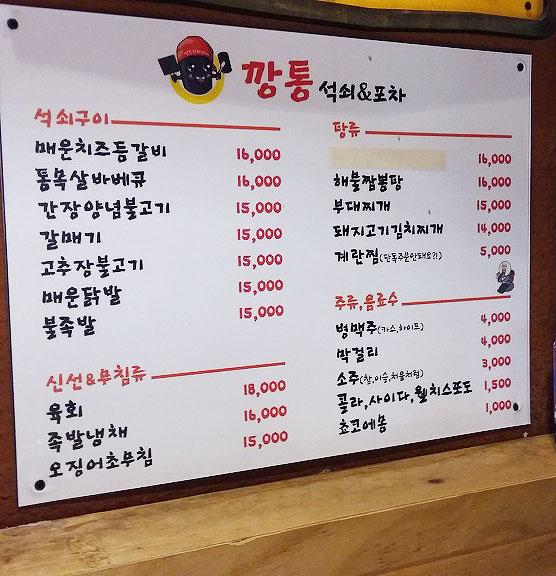 깡통 석쇠&포차
석쇠구이
매운치즈등갈비 16,000
통목살바베큐 16,000
간장양념불고기 15,000
갈매기 15,000
고추장불고기 15,000
매운닭발 15,000
불족발 15,000
신선&무침류
육회 18,000
족발냉채 16,000
오징어초무침 15,000
탕류
16,000
해물짬뽕탕 16,000
부대찌개 15,000
돼지고기김치찌개 14,000
계란찜(단독주문안돼요?!) 5,000
주류,음료수
병맥주(카스,하이트) 4,000
막걸리 4,000
소주(참,이슬,처음처럼) 3,000
콜라,사이다,웰치스포도 1,500
쵸코에몽 1,000